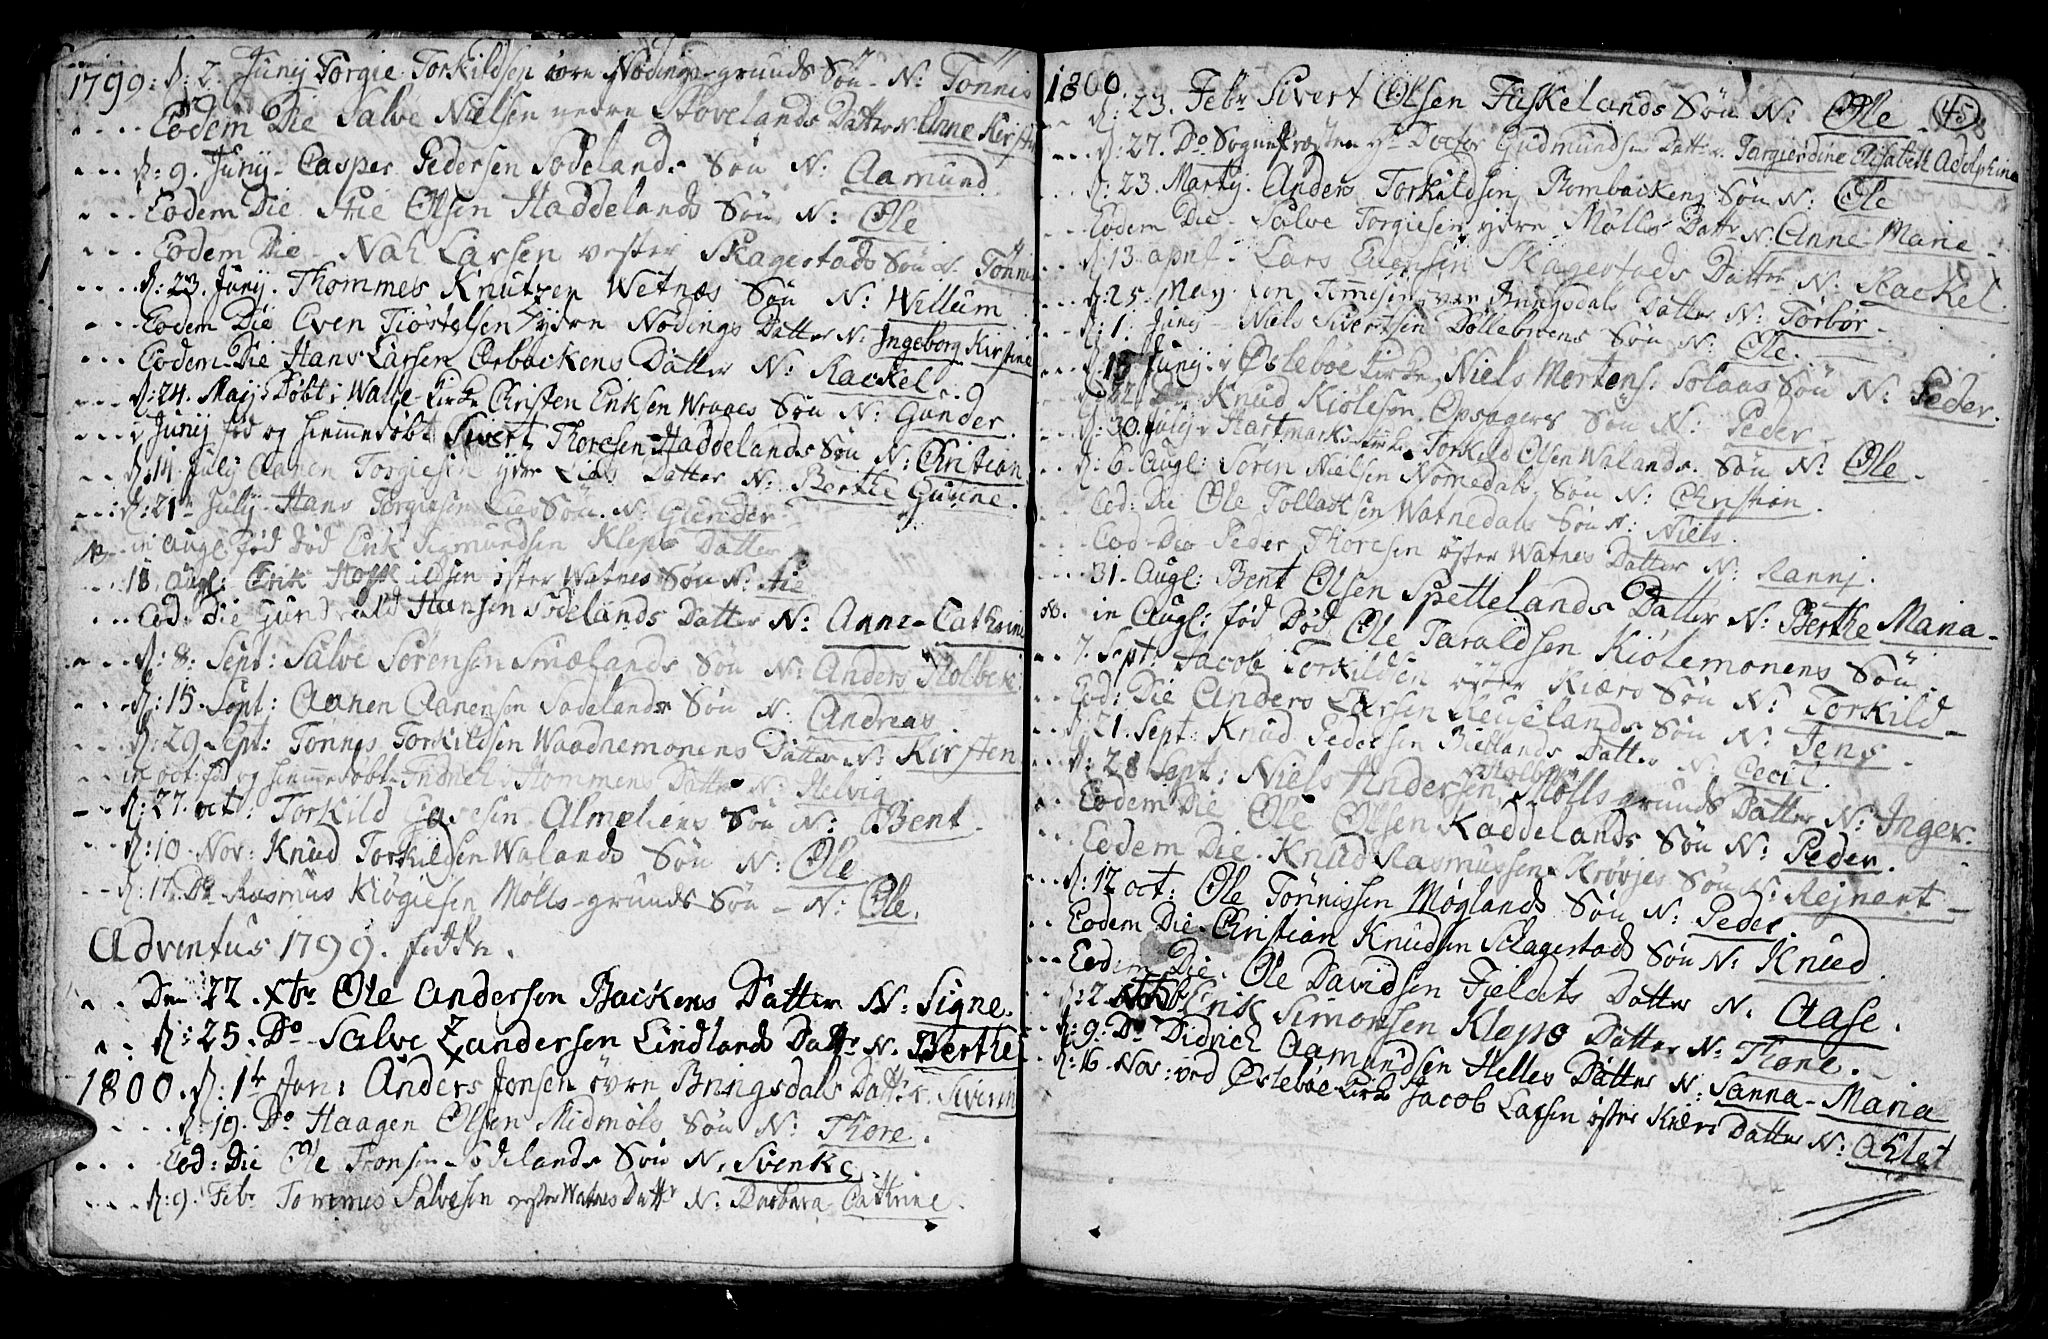 1799. d: 2. Junij Torgie Torkildsen øvre Nødings-grunds Søn N: Tønnis
Eodem Die Salve Nielsen nedre Stovelands Datter N: Anne Kirstin
d: 9. Junij Casper Pedersen Sodelands Søn N: Aamund.
Eodem Die Stie Olsen Haddelands Søn N: Ole
Eodem Die Larsen vester Skagestads Søn N. Tønnes
d: 23. Junij. Thommes Knutzen Wetnæs Søn N: Willum
Eodem Die Even Tiøstelsen Ydre Nødings Datter N: Ingeborg Kirstine
Eodem Die Hans Larsen Orbackens Datter N: Rackel.
d: 24. Maij Døbt i Walle Kirke Christen Eriksen Wraaes Søn N: Gunder.
i Junij fød og hiemmedøbt Sivert Thoresen Haddelands Søn N: Christian
d: 14. July Aanen Torgiesen ydre Lies Datter N: Berthe Gurine.
d: 21de July Hans Torgiesen Lies Søn N: Gunder
in Augl: fød død Erik Sigmundsen Kleps Datter
18. Augl: Erik Haskildsen øster Watnes Søn N: Stie
Eod: Die Gundvald Hansen Sodelands Datter N: Anne-Cathrine
d: 8: Sept: Salve Sørensen Smælands Søn N: Anders Holbek.
d: 15. Sept: Aanen Aanensen Sodelands Søn N: Andreas
d: 29 Sept: Tønnes Torkildsen Waadnemonens Datter N: Kirsten
in oct: fød og hiemmedøbt Hommens Datter N: Helvig
d: 27. oct: Torkild Almeliens Søn N: Bent.
d: 10. Nov: Knud Torkildsen Walands Søn N: Ole
d: 17. Do Rasmus Kiøgiesen Mølls-grunds Søn N: Ole.
Adventus 1799.
Den 22. Xbr Ole Andersen Backens Datter N: Signe.
d: 25. Do Salve Zandersen Lindlands Datter N. Berthe
1800. d: 1te Jan: Anders Jensen øvre Bringsdals Datter N. Sivirin
d: 19. Do Haagen Olsen Midmøls Søn N: Thore.
Eod: Die Ole Tronsen Sodelands Søn N. Svenke.
d: 9. Febr Tommes Salvesen vester Watnes Datter N: Barbara Cathrine.
1800. 45
d: 23. Febr Sivert Olsen Fuskelands Søn N: Ole
d: 27. Do Sognepræsten Hr Doctor Gudmundsen Datter N. Torgierdine Elisabeth Adolphine
d: 23. Martij. Anders Torkildsen Rombackens Søn N: Ole
Eodem Die Salve Torgiesen ydre Mølls Datter N. Anne-Marie
d: 13. april Lars Evensen Skagestads Datter N: Rackel
d: 25. May Tønnesen øvre Bringsdals Datter N: Torbor
d: 1. Junij Niels Sivertsen Døllebroens Søn N: Ole.
d: 15 Junij i Øsleboe Kirke, Niels Mortens: Solaas Søn N: Peder.
d: 22. Do Knud Kiølesen Opsagers Søn N: Peder
d: 30. Junij i Hartmark Kirke Torkild Olsen Walands Søn N: Ole
d: 6. Augl: Søren Nielsen Nomedals Søn N: Christian.
Eod: Die Ole Tollaksen Watnedals Søn N: Niels.
Eod Die Peder Thoresen øster Watnes Datter N: Rannj.
31. Augl: Bent Olsen Spettelands Datter N: Berthe Maria
in Augl: fød Død Ole Taraldsen Kiølemonens Søn
7. Sept: Jacob Torkildsen Kiærs Søn N: Torkild
Eod: Die Anders Larsen Søn N: Jens
d: 21. Sept: Knud Pedersen Bielands Datter N: Cecil.
d: 28 Sept: Niels Andersen Holbek Mølls grunds Datter N: Inger.
Eodem Die Ole Olsen Kaddelands Søn N: Peder.
Eodem Die Knud Rasmussen Krøvjes Søn N: Rejnert
d: 12 oct: Ole Tønnissen Møglands Søn N: Peder.
Eodem Die Christian Knudsen Skagestads Søn N: Knud
Eodem Die Ole Davidsen Fieldets Datter N. Aase.
d: 2 Erik Simonsen Kleps Datter N: Thone.
d: 9. Do Didrich Aamundsen Helles Datter N. Sanna-Maria
d: 16. Nov: ved Øslebøe Kirke Jacob Larsen øster Kiærs Datter N: Ahlet